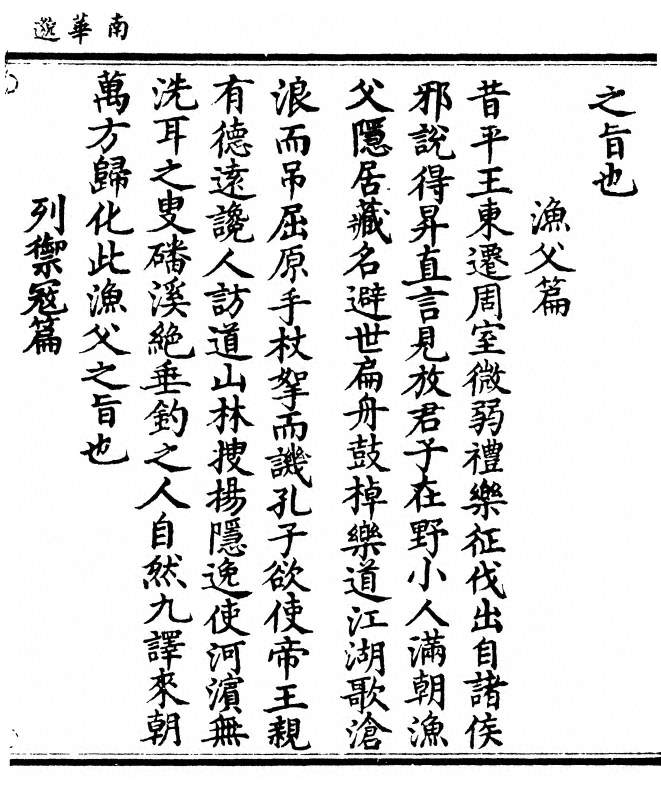 南華邈
之旨也
漁父篇
昔平王東遷周室微弱禮樂征伐出自諸侯
邪說得昇直言見放君子在野小人滿朝漁
父隱居藏名避世扁舟鼓棹樂道江湖歌滄
浪而吊屈原手杖拏而譏孔子欲使帝王親
有德遠讒人訪道山林搜揚隱逸使河濱無
洗耳之叟磻溪絕垂釣之人自然九譯來朝
萬方歸化此漁父之旨也
列禦冦篇